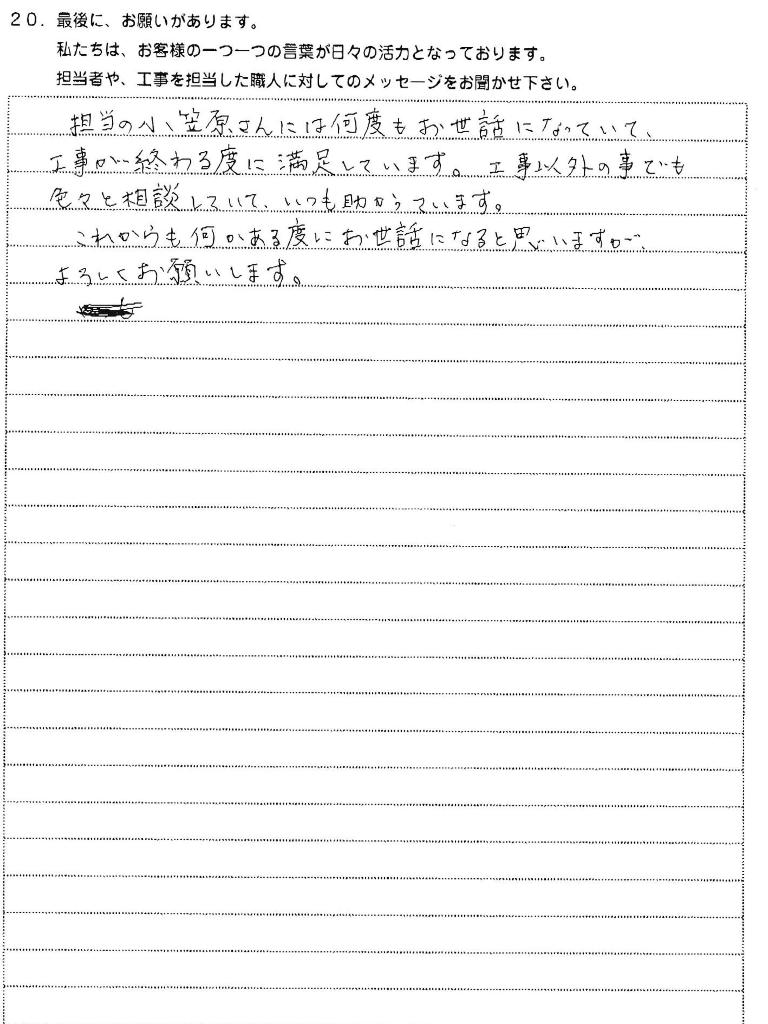 20. 最後に、お願いがあります。
私たちは、お客様の一つ一つの言葉が日々の活力となっております。
担当者や、工事を担当した職人に対してのメッセージをお聞かせ下さい。
担当の小笠原さんには何度もお世話になっていて、
工事が終わる度に満足しています。工事以外の事でも
色々と相談していて、いつも助かっています。
これからも何かある度にお世話になると思いますが、
よろしくお願いします。